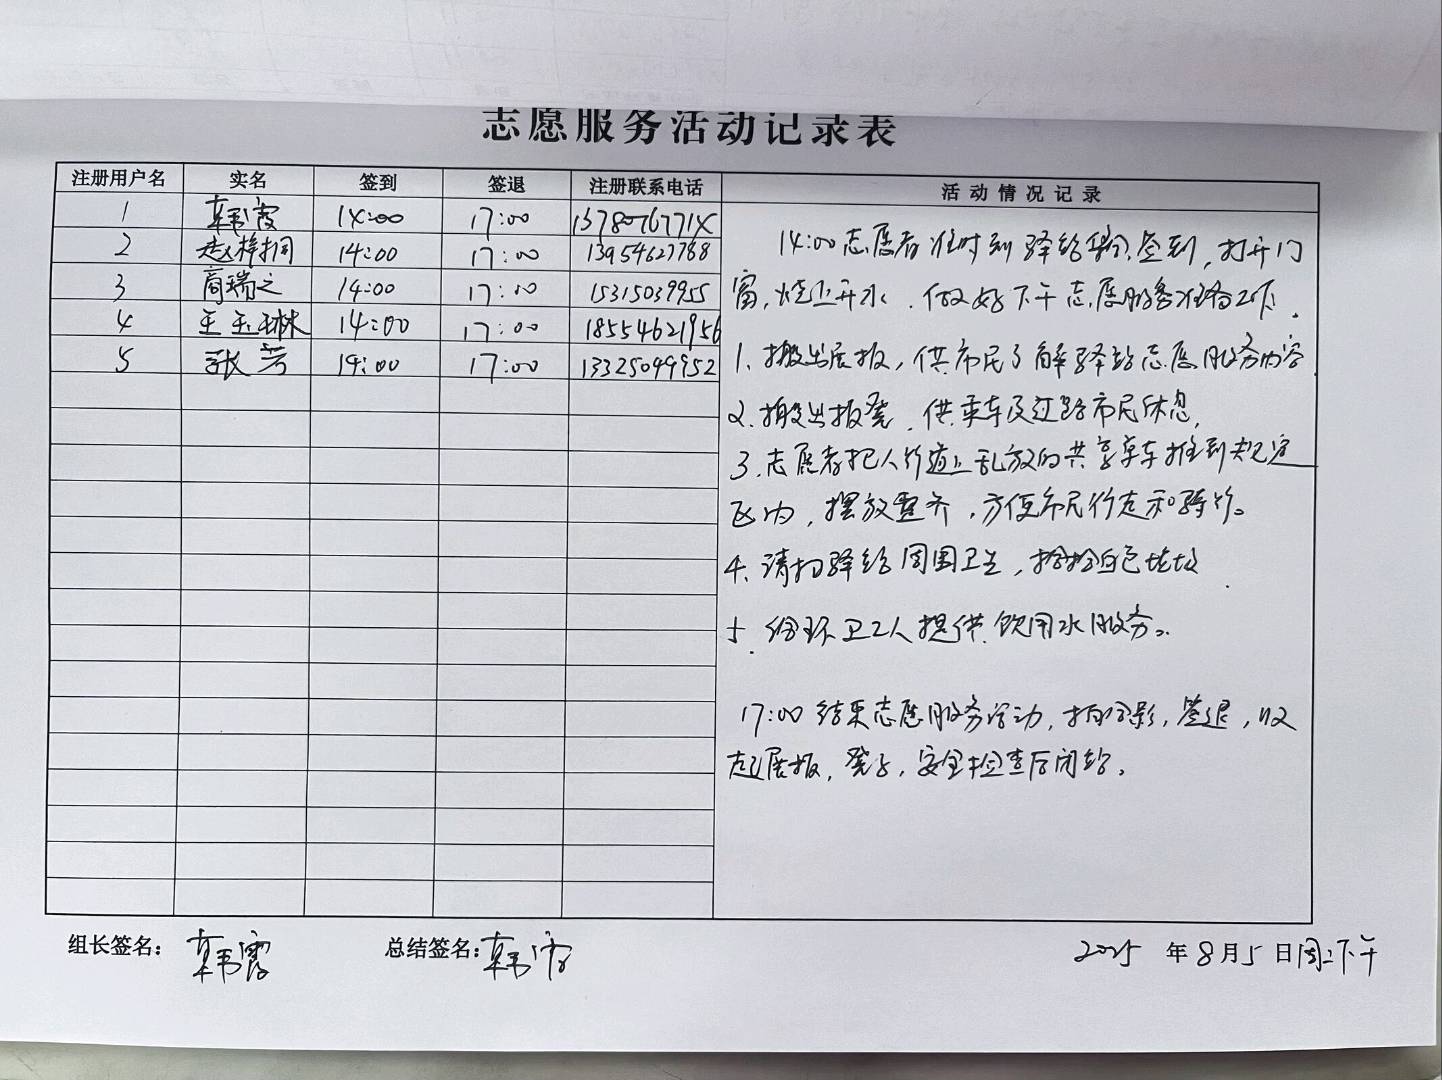 志愿服务活动记录表
注册用户名 实名 签到 签退 注册联系电话 活动情况记录
1 韩霞 14:00 17:00
2 赵梓桐 14:00 17:00 13954627788
3 商瑞之 14:00 17:00 15315039955
4 王玉琳 14:00 17:00 18554621956
5 张芳 14:00 17:00 13325099952
14:00志愿者准时到驿站签到,打开门
窗,烧上开水,做好下午志愿服务准备工作.
1.搬出展报,供市民了解驿站志愿服务内容
2.搬出报凳,供乘车及过路市民休息,
3.志愿者把人行道上乱放的共享单车推到规定
区内,摆放整齐,方便市民行走和骑行。
4.清扫驿站周围卫生,捡捡白色垃圾.
5.给环卫工人提供饮用水服务。
17:00结束志愿服务活动,拍合影,签退,收
起展报,凳子,安全检查后闭站。
组长签名:韩霞 总结签名:韩霞 2025年8月5日周二下午